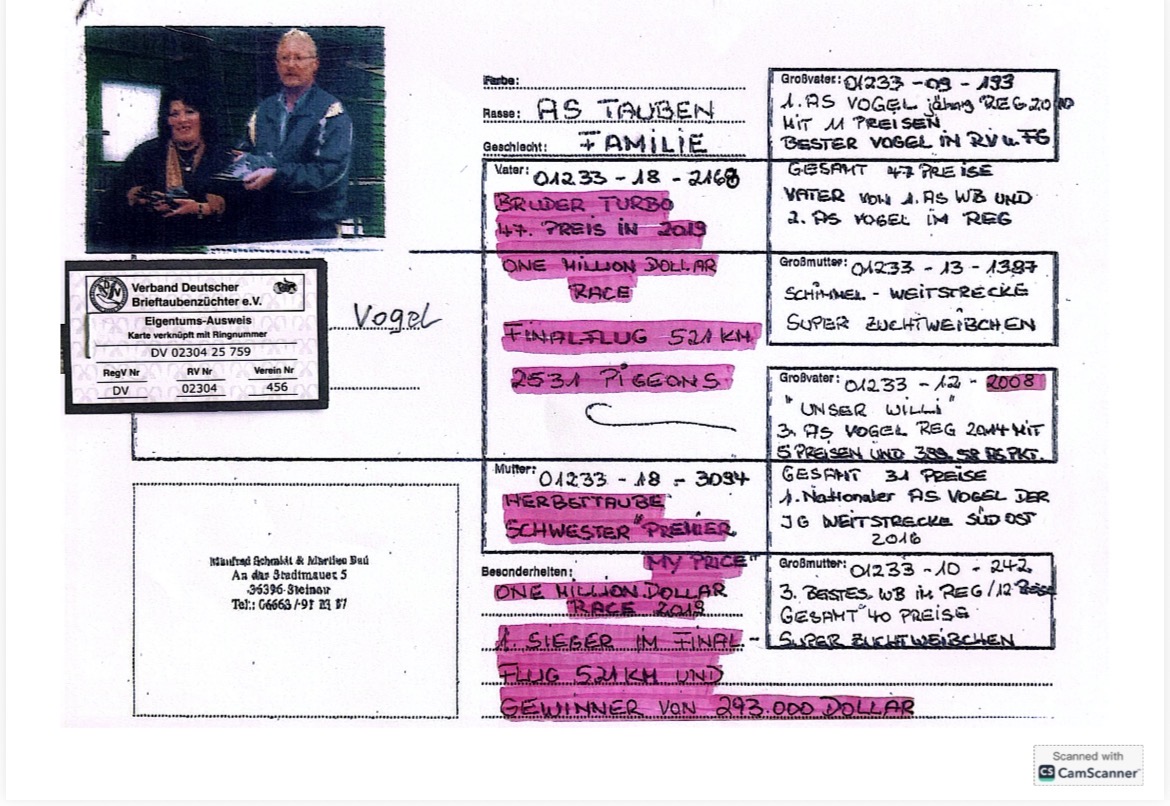 Farbe:
Rasse: AS TAUBEN
Geschlecht: FAMILIE
Verband Deutscher
Brieftaubenzüchter e.V.
Eigentums-Ausweis
Karte verknüpft mit Ringnummer
DV 02304 25 759
RegV Nr RV Nr Verein Nr
DV 02304 456
Vogel
Vater: 01233 - 18 - 2168
BRUDER TURBO
47. PREIS IN 2019
ONE MILLION DOLLAR
RACE
FINALFLUG 521 KM
2531 PIGEONS
Mutter: 01233 - 18 - 3094
HERBSTTAUBE
SCHWESTER "PREMIER
MY PRICE"
Besonderheiten:
ONE MILLION DOLLAR
RACE 2019
1. SIEGER IM FINAL-
FLUG 521 KM UND
GEWINNER VON 293.000 DOLLAR
Großvater: 01233 - 09 - 193
1. AS VOGEL jährig REG 2010
MIT 11 PREISEN
BESTER VOGEL IN RV u. FG
GESAMT 47 PREISE
VATER VON 1. AS WB UND
2. AS VOGEL IM REG
Großmutter: 01233 - 13 - 1387
SCHIMMEL - WEITSTRECKE
SUPER ZUCHTWEIBCHEN
Großvater: 01233 - 12 - 2008
"UNSER WILLI"
3. AS VOGEL REG 2014 MIT
5 PREISEN UND 389,58 AS PKT.
GESAMT 31 PREISE
1. Nationaler AS VOGEL DER
JG WEITSTRECKE SÜD OST
2016
Großmutter: 01233 - 10 - 242
3. BESTES WB im REG / 12 Preise
GESAMT 40 PREISE
SUPER ZUCHTWEIBCHEN
Manfred Schmidt &
An der Stadtmauer 5
36396 Steinau
Tel.: 06663 / 91
Scanned with
CS CamScanner